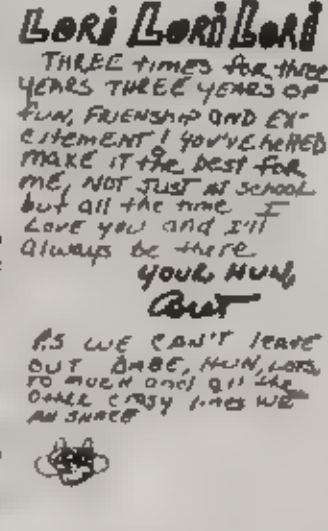 LORi LORi LORi
THREE times for three
YEARS THREE YEARS OF
fun, FRIENSHIP AND EX-
CITEMENT! YOU'VE HELPED
MAKE IT the best for
ME, NOT JUST AT SCHOOL
but all the time I
LOVE YOU and I'll
always be there
YOUR HUN,
P.S WE CAN'T leave
OUT BABE, HUN, LOTS,
TO MUCH and all the
OTHER CRASY times WE
SHARE